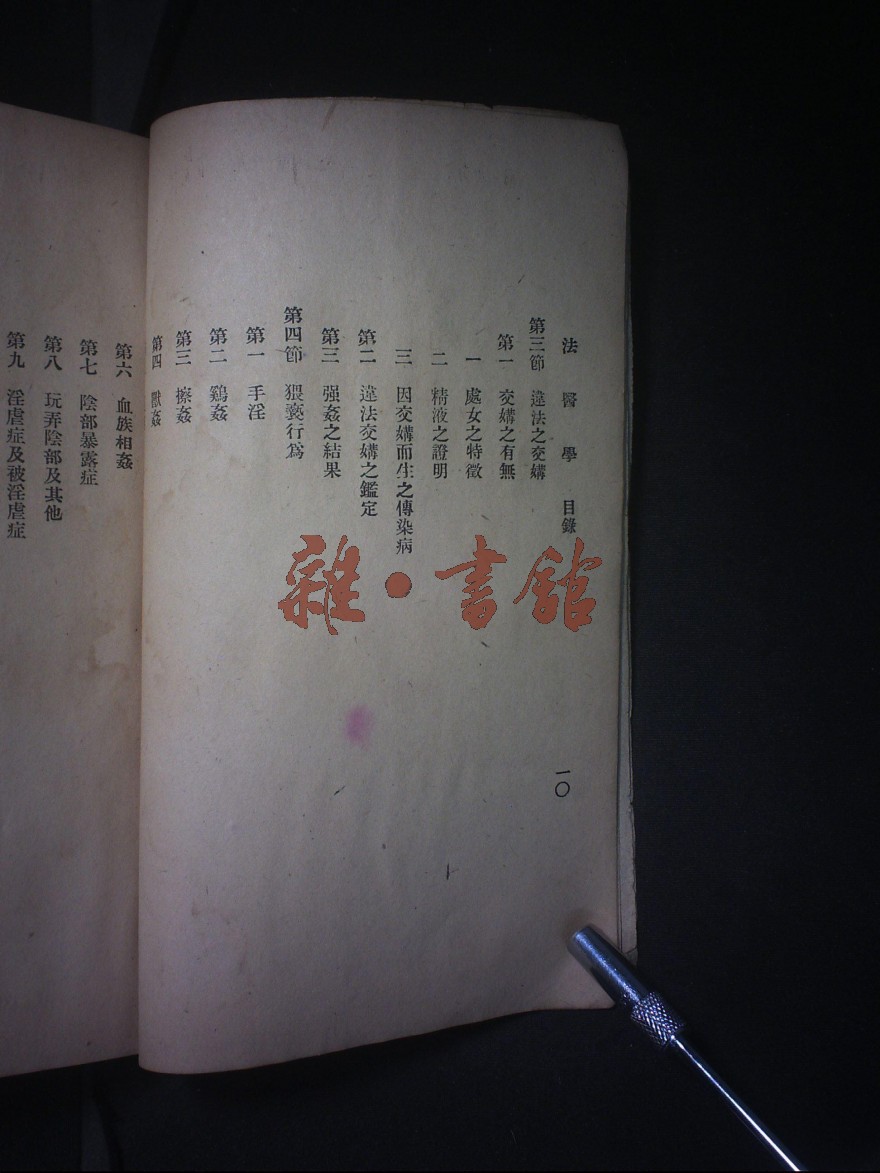 法醫學 目錄
第三節 違法之交媾
第一 交媾之有無
一 處女之特徵
二 精液之證明
三 因交媾而生之傳染病
第二 違法交媾之鑑定
第三 强姦之結果
第四節 猥褻行爲
第一 手淫
第二 鷄姦
第三 擦姦
第四 獸姦
一〇
第六 血族相姦
第七 陰部暴露症
第八 玩弄陰部及其他
第九 淫虐症及被淫虐症
雜·書館